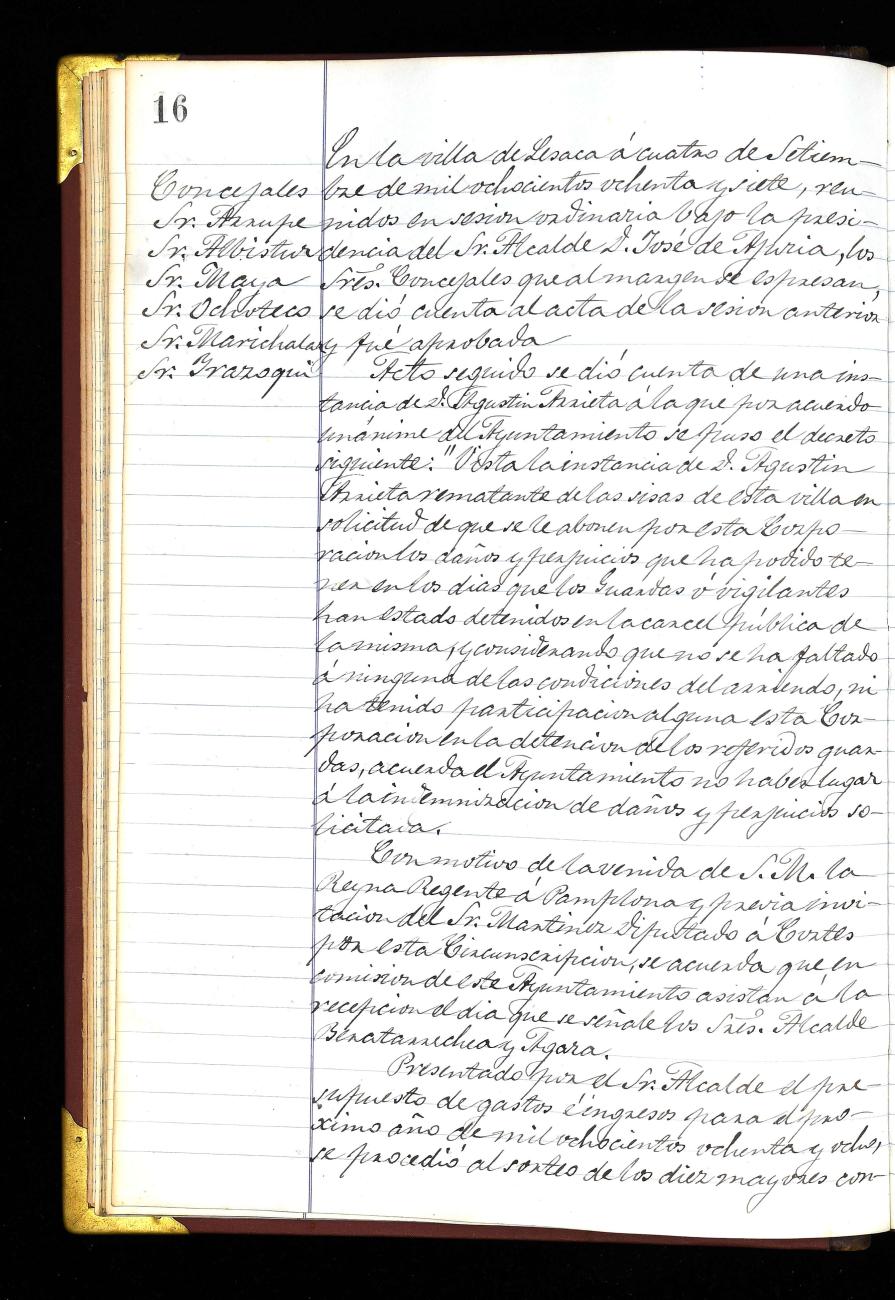 16
Concejales
Sr. Arrupe
Sr. Albistur
Sr. Maya
Sr. Ochoteco
Sr. Marichalar
Sr. Irazoqui
En la villa de Lesaca á cuatro de Setiem-
bre de mil ochocientos ochenta y siete, reu-
nidos en sesion ordinaria bajo la presi-
dencia del Sr. Alcalde D. José de Ajuria, los
Sres. Concejales que al margen se espresan,
se dió cuenta al acta de la sesion anterior
y fué aprobada
Acto seguido se dió cuenta de una ins-
tancia de D. Agustin Arrieta á la que por acuerdo
unánime del Ayuntamiento se puso el decreto
siguiente: "Vista la instancia de D. Agustin
Arrieta rematante de las sisas de esta villa en
solicitud de que se le abonen por esta Corpo-
racion los daños y perjuicios que ha podido te-
ner en los dias que los Guardas ó vigilantes
han estado detenidos en la carcel pública de
la misma, y considerando que no se ha faltado
á ninguna de las condiciones del arriendo, ni
ha tenido participacion alguna esta Cor-
poracion en la detencion de los referidos guar-
das, acuerda el Ayuntamiento no haber lugar
á la indemnizacion de daños y perjuicios so-
licitada.
Con motivo de la venida de S. M. la
Reyna Regente á Pamplona y previa invi-
tacion del Sr. Martinez Diputado á Cortes
por esta Circunscripcion, se acuerda que en
comision de este Ayuntamiento asistan á la
recepcion el dia que se señale los Sres. Alcalde
Beratarrechea y Agara.
Presentado por el Sr. Alcalde el pre-
supuesto de gastos é ingresos para el pro-
ximo año de mil ochocientos ochenta y ocho,
se procedió al sorteo de los diez mayores con-